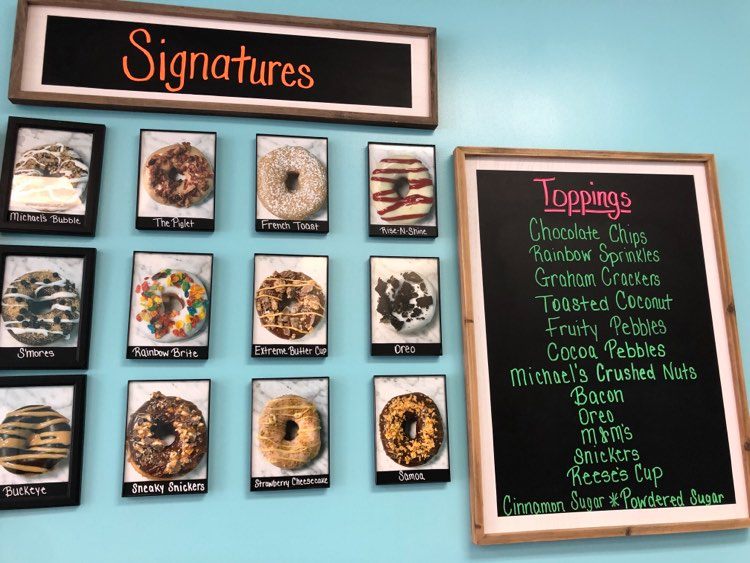 Signatures
Michael's Bubble
The Piglet
French Toast
Rise-N-Shine
S'mores
Rainbow Brite
Extreme Butter Cup
Oreo
Buckeye
Sneaky Snickers
Strawberry Cheesecake
Samoa
Toppings
Chocolate Chips
Rainbow Sprinkles
Graham Crackers
Toasted Coconut
Fruity Pebbles
Cocoa Pebbles
Michael's Crushed Nuts
Bacon
Oreo
M&M's
Snickers
Reese's Cup
Cinnamon Sugar * Powdered Sugar